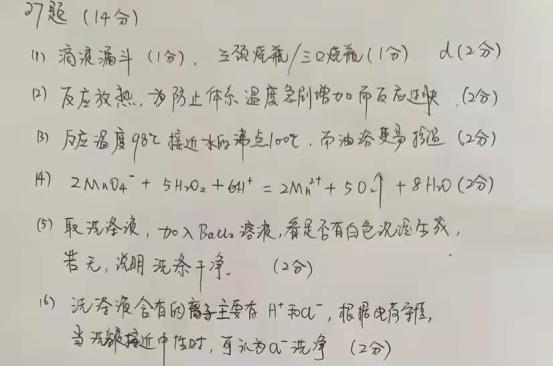 27题 (14分)
(1) 滴液漏斗 (1分)、三颈烧瓶/三口烧瓶(1分) d(2分)
(2) 反应放热，为防止体系温度急剧增加而反应过快 (2分)
(3) 反应温度98℃接近水的沸点100℃，而油浴更易控温 (2分)
(4) 2MnO₄⁻ + 5H₂O₂ + 6H⁺ = 2Mn²⁺ + 5O₂↑ + 8H₂O (2分)
(5) 取洗涤液，加入BaCl₂溶液，看是否有白色沉淀生成，
若无，说明洗涤干净。 (2分)
(6) 洗涤液含有的离子主要有 H⁺和Cl⁻，根据电荷守恒，
当洗涤液接近中性时，可认为Cl⁻洗净 (2分)